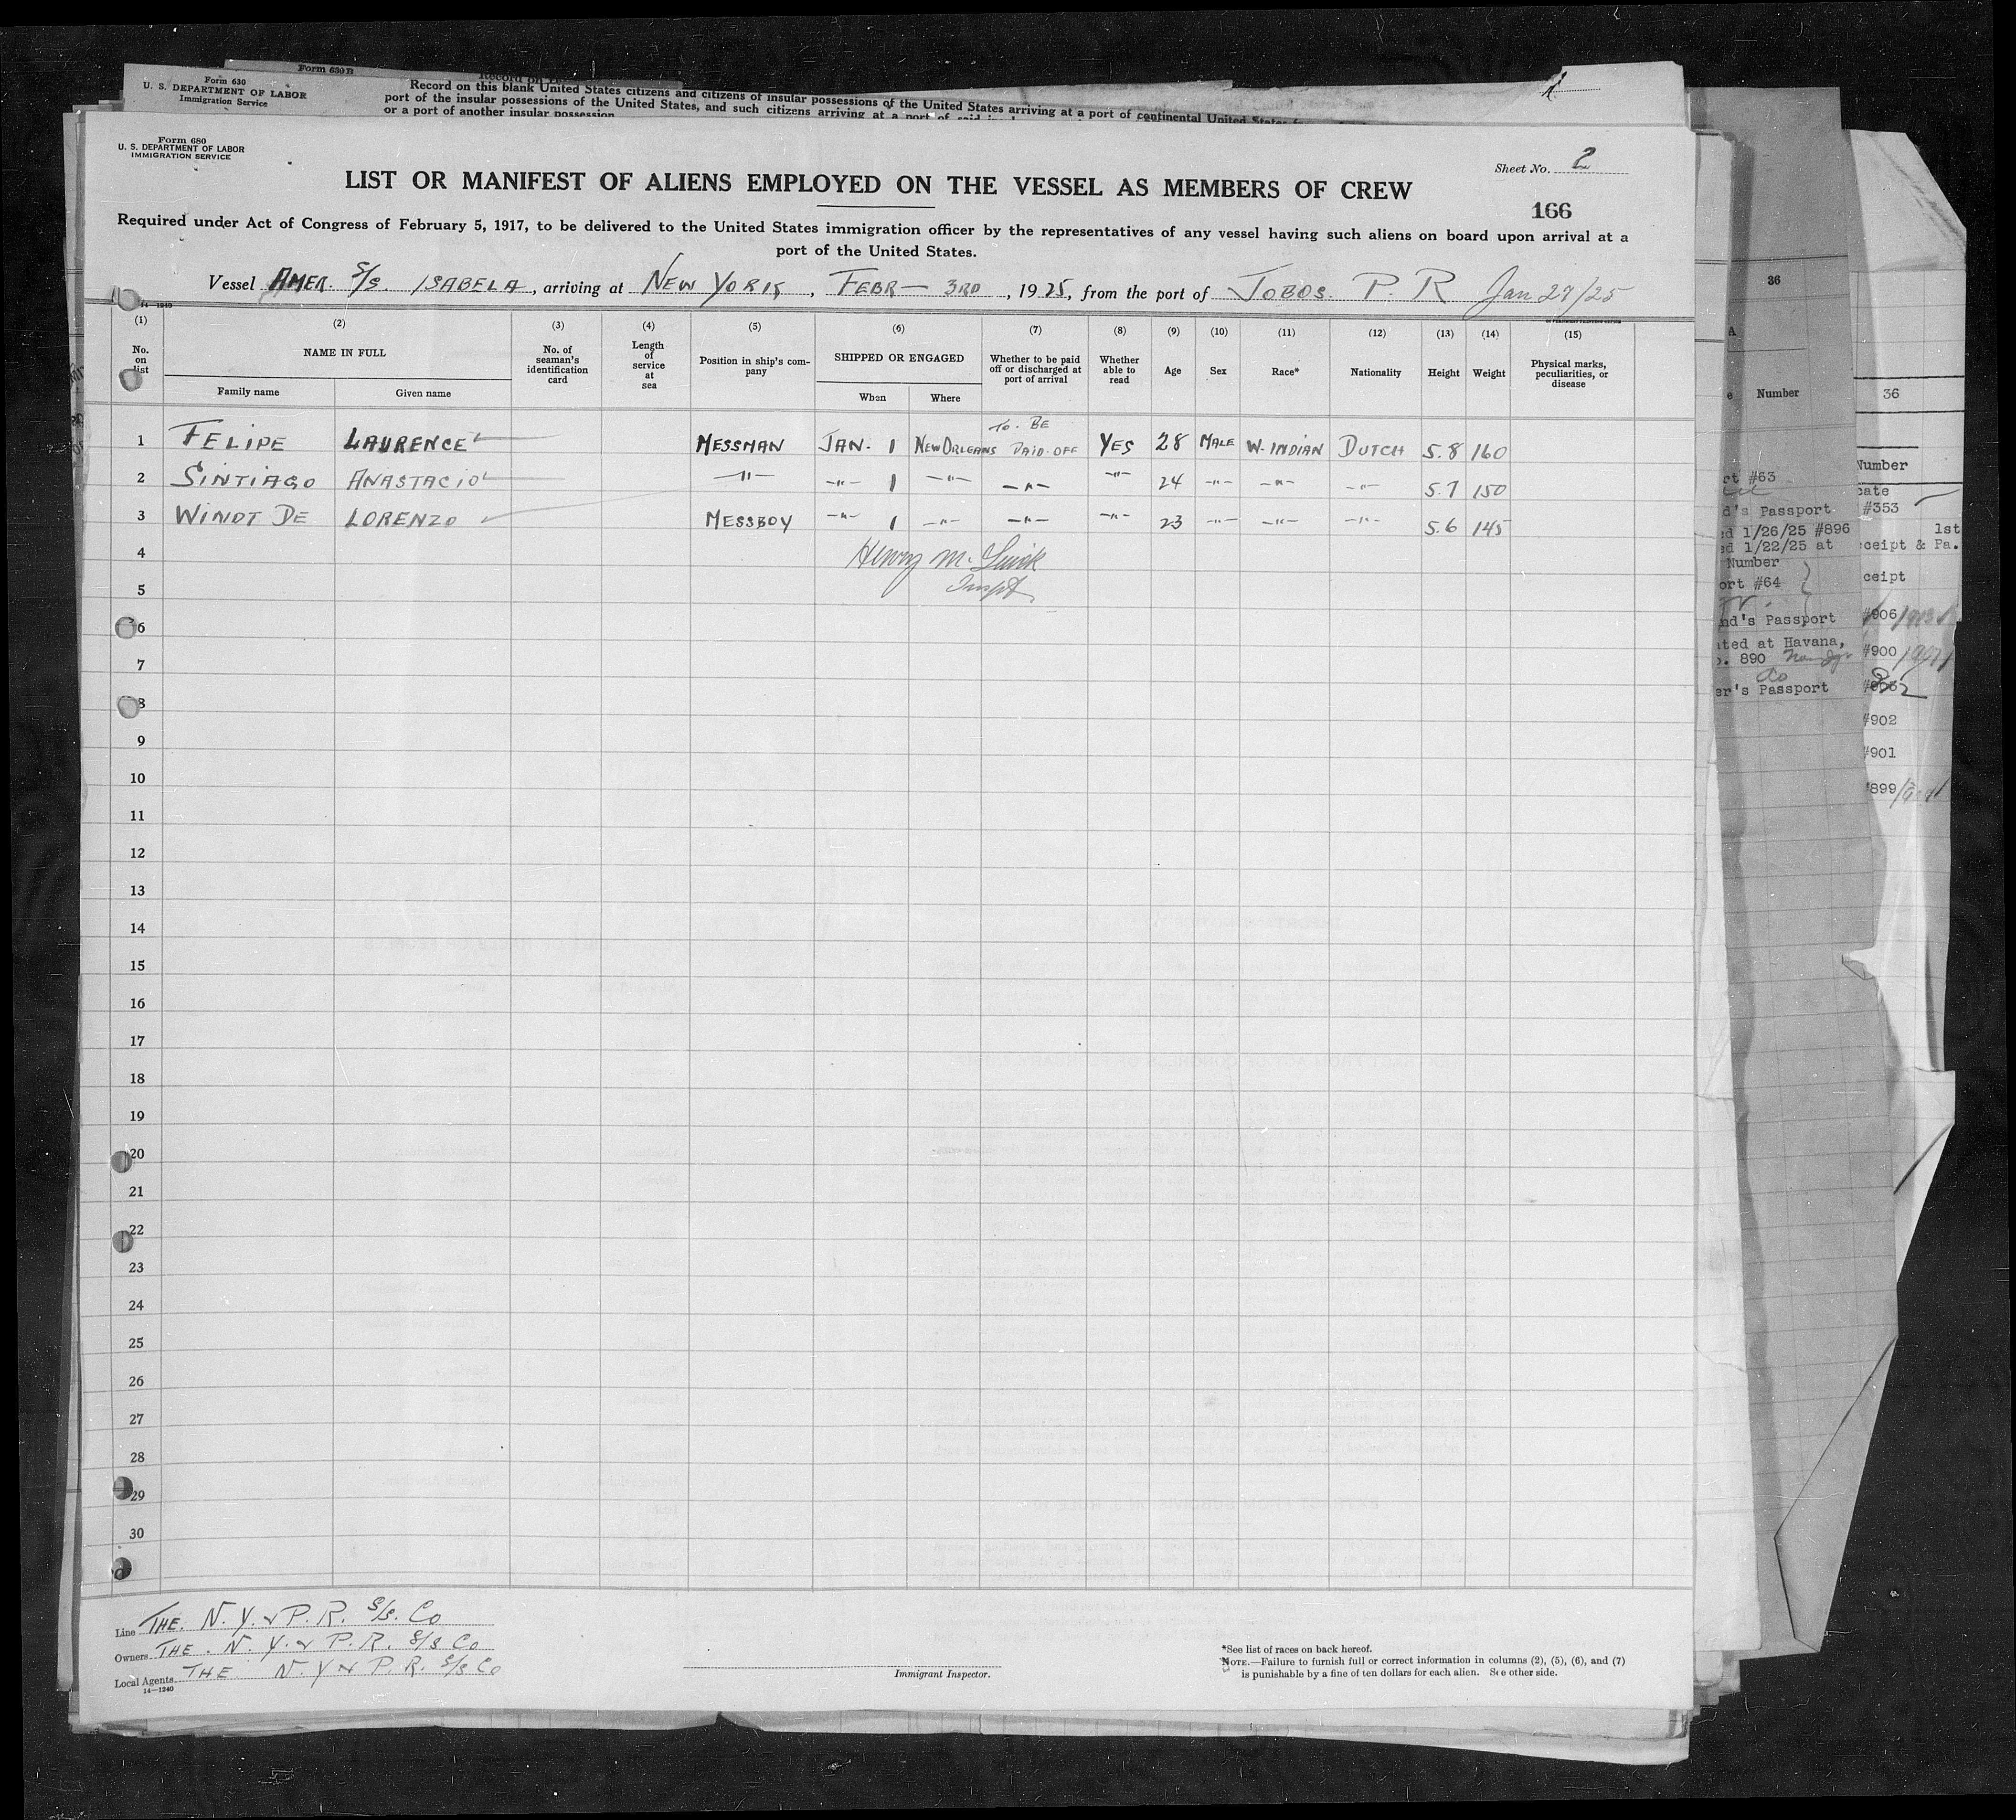 Form 630 B
Form 630
U. S. DEPARTMENT OF LABOR
Immigration Service
Record on this blank United States citizens and citizens of insular possessions of the United States arriving at a port of continental United States
port of the insular possessions of the United States, and such citizens arriving at a port of said
or a port of another insular possession
Form 680
U. S. DEPARTMENT OF LABOR
IMMIGRATION SERVICE
Sheet No. 2
LIST OR MANIFEST OF ALIENS EMPLOYED ON THE VESSEL AS MEMBERS OF CREW
166
Required under Act of Congress of February 5, 1917, to be delivered to the United States immigration officer by the representatives of any vessel having such aliens on board upon arrival at a
port of the United States.
Vessel AMER. S/S. ISABELA, arriving at NEW YORK, FEBR — 3RD, 1925, from the port of JOBOS. P. R Jan 29/25
14—1240
(1) (2) (3) (4) (5) (6) (7) (8) (9) (10) (11) (12) (13) (14) (15)
No. on list
NAME IN FULL
Family name Given name
No. of seaman's identification card
Length of service at sea
Position in ship's company
SHIPPED OR ENGAGED
When Where
Whether to be paid off or discharged at port of arrival
Whether able to read
Age
Sex
Race*
Nationality
Height
Weight
Physical marks, peculiarities, or disease
1 FELIPE LAURENCE MESSMAN JAN. 1 NEW ORLEANS TO BE PAID OFF YES 28 MALE W. INDIAN DUTCH 5.8 160
2 SINTIAGO ANASTACIO —"— —"— 1 —"— —"— —"— 24 —"— —"— —"— 5.7 150
3 WINDT DE LORENZO MESSBOY —"— 1 —"— —"— —"— 23 —"— —"— —"— 5.6 145
4
Henry M.
5
Inspt.
6
7
8
9
10
11
12
13
14
15
16
17
18
19
20
21
22
23
24
25
26
27
28
29
30
Line THE. N. Y. & P. R. S/S. Co
Owners THE. N. Y. & P. R. S/S Co
Local Agents THE N. Y & P. R. S/S Co
14—1240
Immigrant Inspector.
*See list of races on back hereof.
NOTE.—Failure to furnish full or correct information in columns (2), (5), (6), and (7)
is punishable by a fine of ten dollars for each alien. See other side.
36
Number
#63
d's Passport
1/26/25 #896
1/22/25 at
Number
ort #64
nd's Passport
ated at Havana,
890
er's Passport
36
Number
#353
1st
ceipt & Pa.
ceipt
#906
#900
#902
#901
899